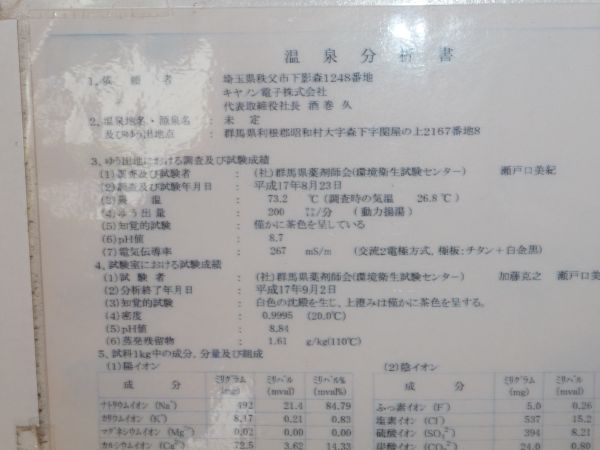 温泉分析書
1. 依頼者 : 埼玉県秩父市下影森1248番地
キヤノン電子株式会社
代表取締役社長 酒巻 久
2. 温泉地名・源泉名 : 未 定
及びゆう出地点 : 群馬県利根郡昭和村大字森下字関屋の上2167番地8
3. ゆう出地における調査及び試験成績
(1)調査及び試験者 : (社)群馬県薬剤師会(環境衛生試験センター) 瀬戸口美紀
(2)調査及び試験年月日 : 平成17年8月23日
(3)泉温 : 73.2 ℃ (調査時の気温 26.8℃)
(4)ゆう出量 : 200 ㍑/分 (動力揚湯)
(5)知覚的試験 : 僅かに茶色を呈している
(6)pH値 : 8.7
(7)電気伝導率 : 267 mS/m (交流2電極方式, 極板:チタン+白金黒)
4. 試験室における試験成績
(1)試験者 : (社)群馬県薬剤師会(環境衛生試験センター) 加藤克之 瀬戸口美
(2)分析終了年月日 : 平成17年9月2日
(3)知覚的試験 : 白色の沈殿を生じ、上澄みは僅かに茶色を呈する。
(4)密度 : 0.9995 (20.0℃)
(5)pH値 : 8.84
(6)蒸発残留物 : 1.61 g/kg(110℃)
5. 試料1kg中の成分, 分量及び組成
(1)陽イオン (2)陰イオン
成分 ミリグラム(mg) ミリバル(mval) ミリバル%(mval%) 成分 ミリグラム(mg) ミリバル(mval)
ナトリウムイオン(Na⁺) 492 21.4 84.79 ふっ素イオン(F⁻) 5.0 0.26
カリウムイオン(K⁺) 8.47 0.21 0.83 塩素イオン(Cl⁻) 537 15.2
マグネシウムイオン(Mg²⁺) 0.02 0.00 0.00 硫酸イオン(SO₄²⁻) 394 8.21
カルシウムイオン(Ca²⁺) 72.5 3.62 14.33 炭酸イオン(CO₃²⁻) 24.0 0.80